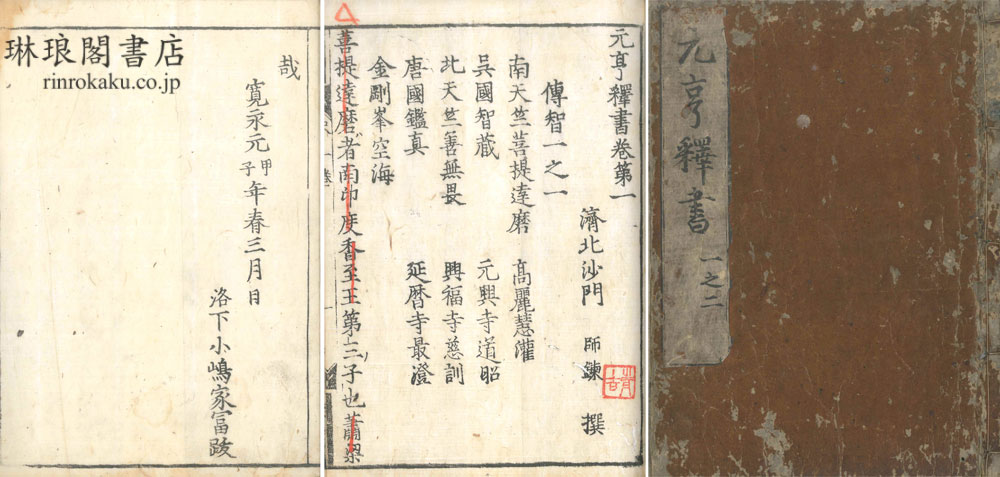 元亨釋書 一之二
元亨釋書卷第一
濟北沙門 師鍊 撰
傳智一之一
南天竺菩提達磨 高麗慧灌
吳國智藏 元興寺道昭
北天竺善無畏 興福寺慈訓
唐國鑑真 延曆寺最澄
金剛峯空海
菩提達磨者南印度香至王第三子也蕭梁
哉
寬永元甲子年春三月日
洛下小嶋家冨跋
琳琅閣書店
rinrokaku.co.jp